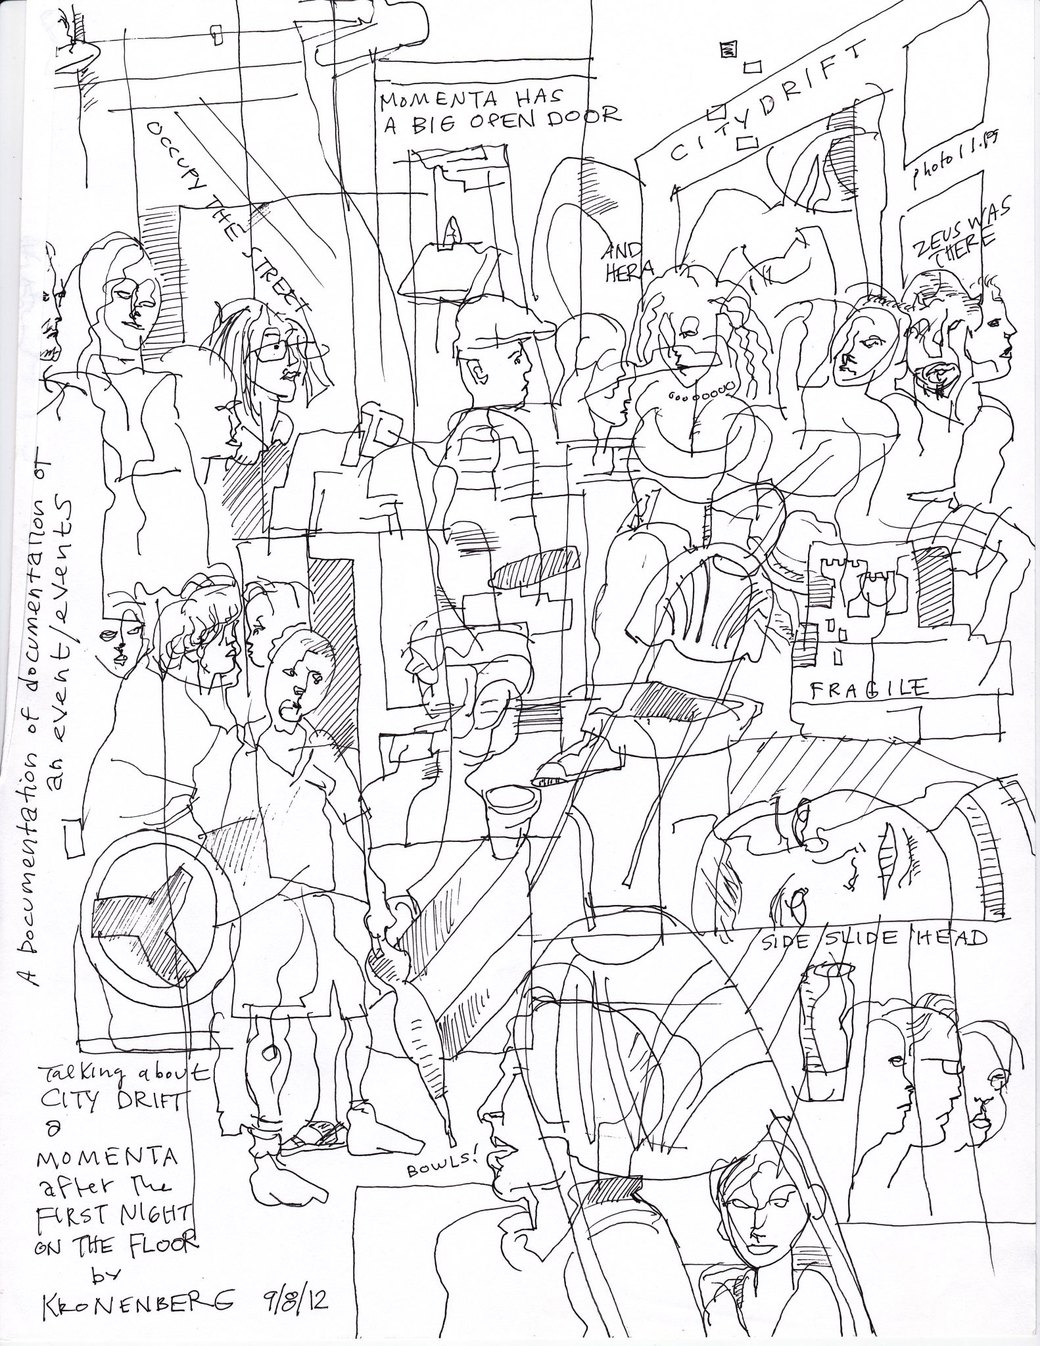 MOMENTA HAS
A BIG OPEN DOOR
CITYDRIFT
photo 11.19
OCCUPY THE STREET
AND
HERA
ZEUS WAS
THERE
A Documentation of documentation of
an event/events
FRAGILE
SIDE/SLIDE HEAD
Talking about
CITY DRIFT
@
MOMENTA
after The
FIRST NIGHT
ON THE FLOOR
by
KRONENBERG 9/8/12
BOWLS!